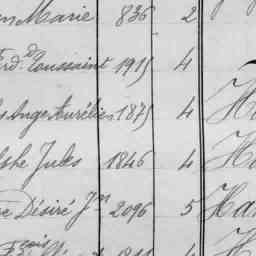 en Marie 836 2
erd.d Toussaint 1915 4
s Ange Aurélien 1875 4
phe Jules 1846 4 Ha
e Désiré Jn 2096 5 Ha
Fçois